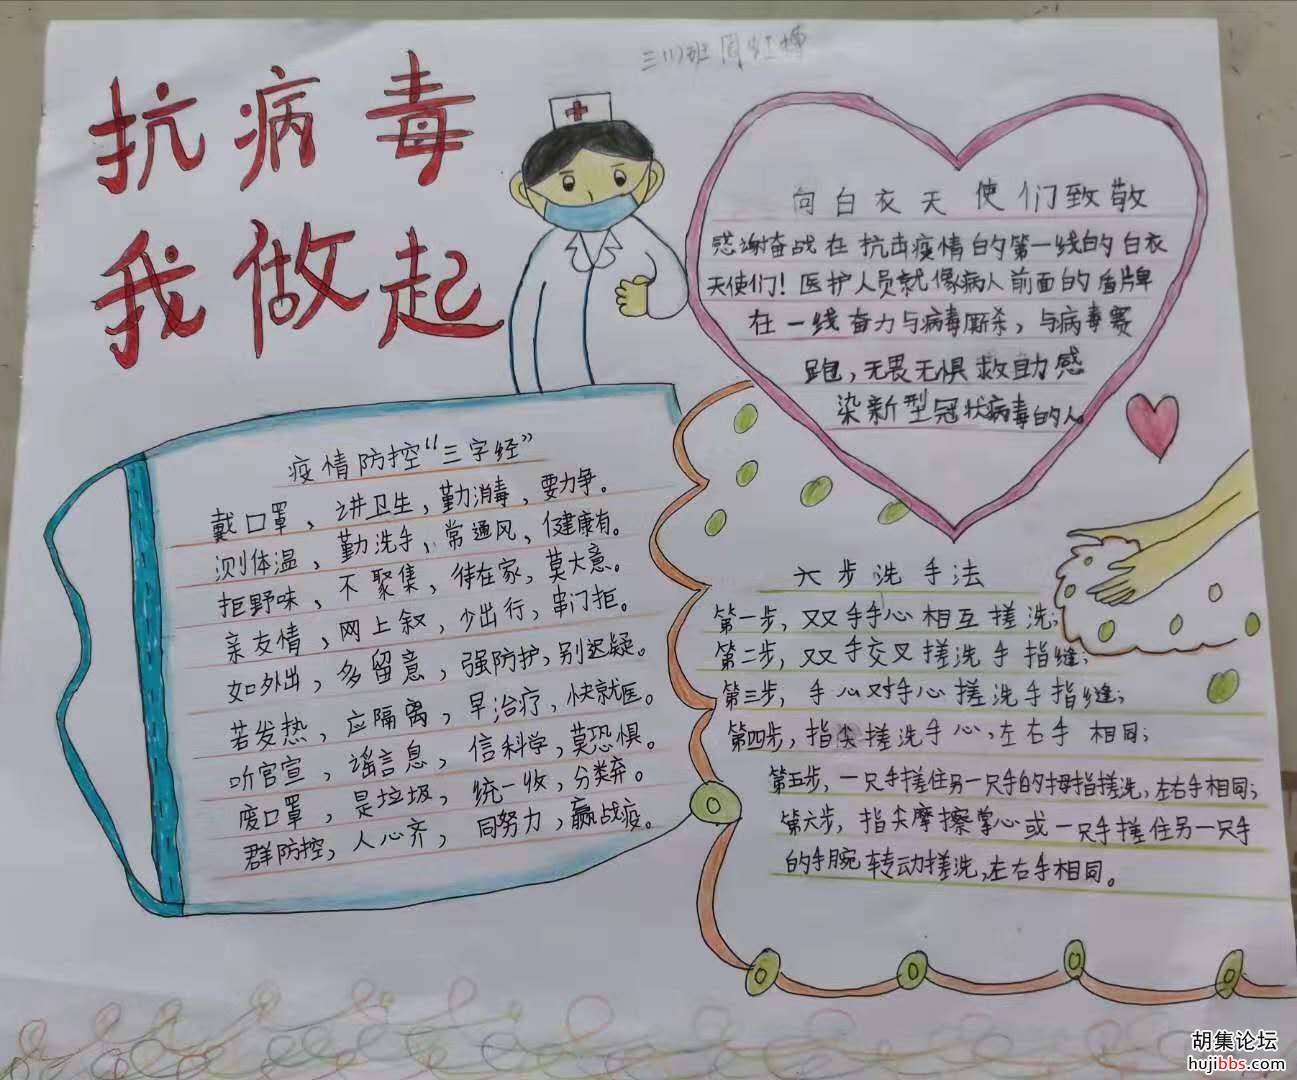 三(1)班
抗病毒
我做起
向白衣天使们致敬
感谢奋战在抗击疫情的第一线的白衣
天使们！医护人员就像病人前面的盾牌
在一线奋力与病毒厮杀，与病毒赛
跑，无畏无惧救助感
染新型冠状病毒的人。
疫情防控“三字经”
戴口罩，讲卫生，勤消毒，要力争。
测体温，勤洗手，常通风，健康有。
拒野味，不聚集，待在家，莫大意。
亲友情，网上叙，少出行，串门拒。
如外出，多留意，强防护，别迟疑。
若发热，应隔离，早治疗，快就医。
听官宣，谣信息，信科学，莫恐惧。
废口罩，是垃圾，统一收，分类弃。
群防控，人心齐，同努力，赢战疫。
六步洗手法
第一步，双手手心相互搓洗；
第二步，双手交叉搓洗手指缝；
第三步，手心对手心搓洗手指缝；
第四步，指尖搓洗手心，左右手相同；
第五步，一只手搓住另一只手的拇指搓洗，左右手相同；
第六步，指尖摩擦掌心或一只手搓住另一只手
的手腕转动搓洗，左右手相同。
胡集论坛
hujibbs.com